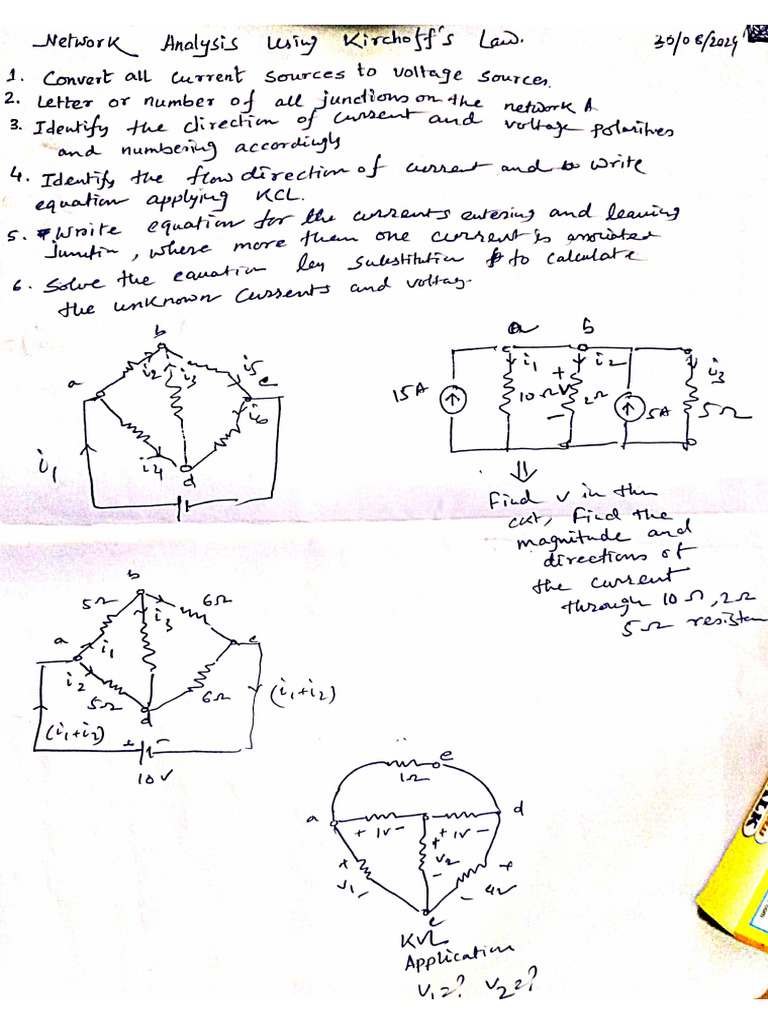 Network Analysis using Kirchoff's Law. 30/08/2024
1. Convert all current sources to voltage sources.
2. Letter or number of all junctions on the network A
3. Identify the direction of current and voltage polarities
and numbering accordingly
4. Identify the flow direction of current and to write
equation applying KCL.
5. Write equation for the currents entering and leaving
Junction, where more them one current is associated
6. Solve the equation by substitution to calculate
the unknown currents and voltag.
b
a
i2
i3
i5
e
i6
i4
d
i1
a b
15A
i1
10Ω
+
V
-
i2
2Ω
5A
i3
5Ω
Find V in the
ckt, Find the
magnitude and
directions of
the current
through 10Ω, 2Ω
5Ω resistan
b
5Ω
6Ω
a
i1
i3
i2
5Ω
6Ω
d
(i1+i2)
(i1+i2)
+ -
10V
e
1Ω
a
d
+ 1V -
+ 1V -
+
V1
-
+
V2
-
+
4V
-
KVL
Application
V1=? V2=?